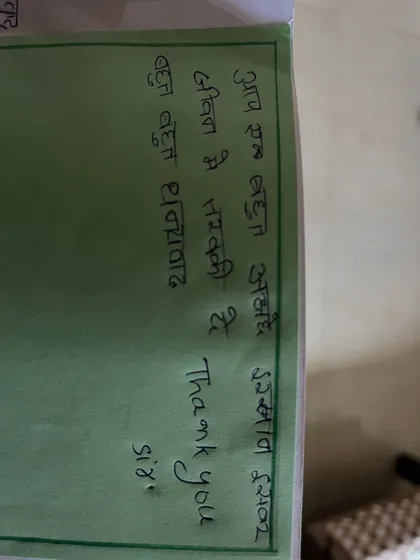 आप एक बहुत अच्छे इन्सान ईश्वर
जीवन मे तरक्की दे Thank you
बहुत बहुत धन्यवाद sir.